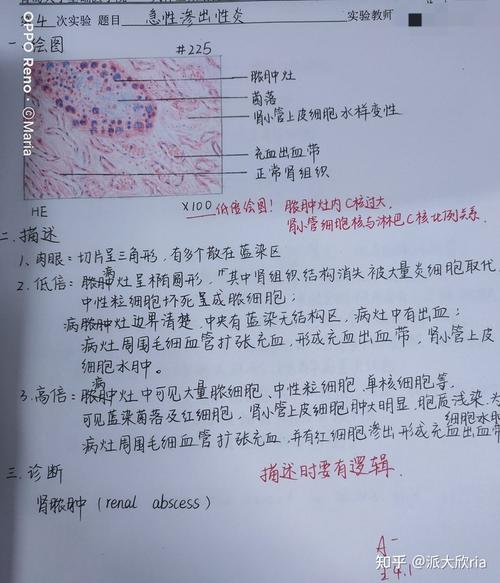 4 次实验 题目 急性渗出性炎 实验教师
一 绘图
#225
脓肿灶
菌落
肾小管上皮细胞水样变性
充血出血带
正常肾组织
HE
×100
低倍绘图! 脓肿灶内C核过大.
肾小管细胞核与淋巴C核比例关系.
二. 描述
1、肉眼:切片呈三角形,有多个散在蓝染区
病
2、低倍:脓肿灶呈椭圆形,其中肾组织结构消失被大量炎细胞取代
中性粒细胞坏死呈成脓细胞;
病脓肿灶边界清楚,中央有蓝染无结构区,病灶中有出血;
病灶周围毛细血管扩张充血,形成充血出血带,肾小管上皮
细胞水肿。
病
3、高倍:脓肿灶中可见大量脓细胞、中性粒细胞、单核细胞等,
可见蓝染菌落及红细胞,肾小管上皮细胞肿大明显,胞质浅染,为
细胞水
病灶周围毛细血管扩张充血,并有红细胞渗出形成充血出血带
三. 诊断
描述时要有逻辑.
肾脓肿(renal abscess)
A-
4.1
OPPO Reno · ©Maria
知乎 @派大欣ria